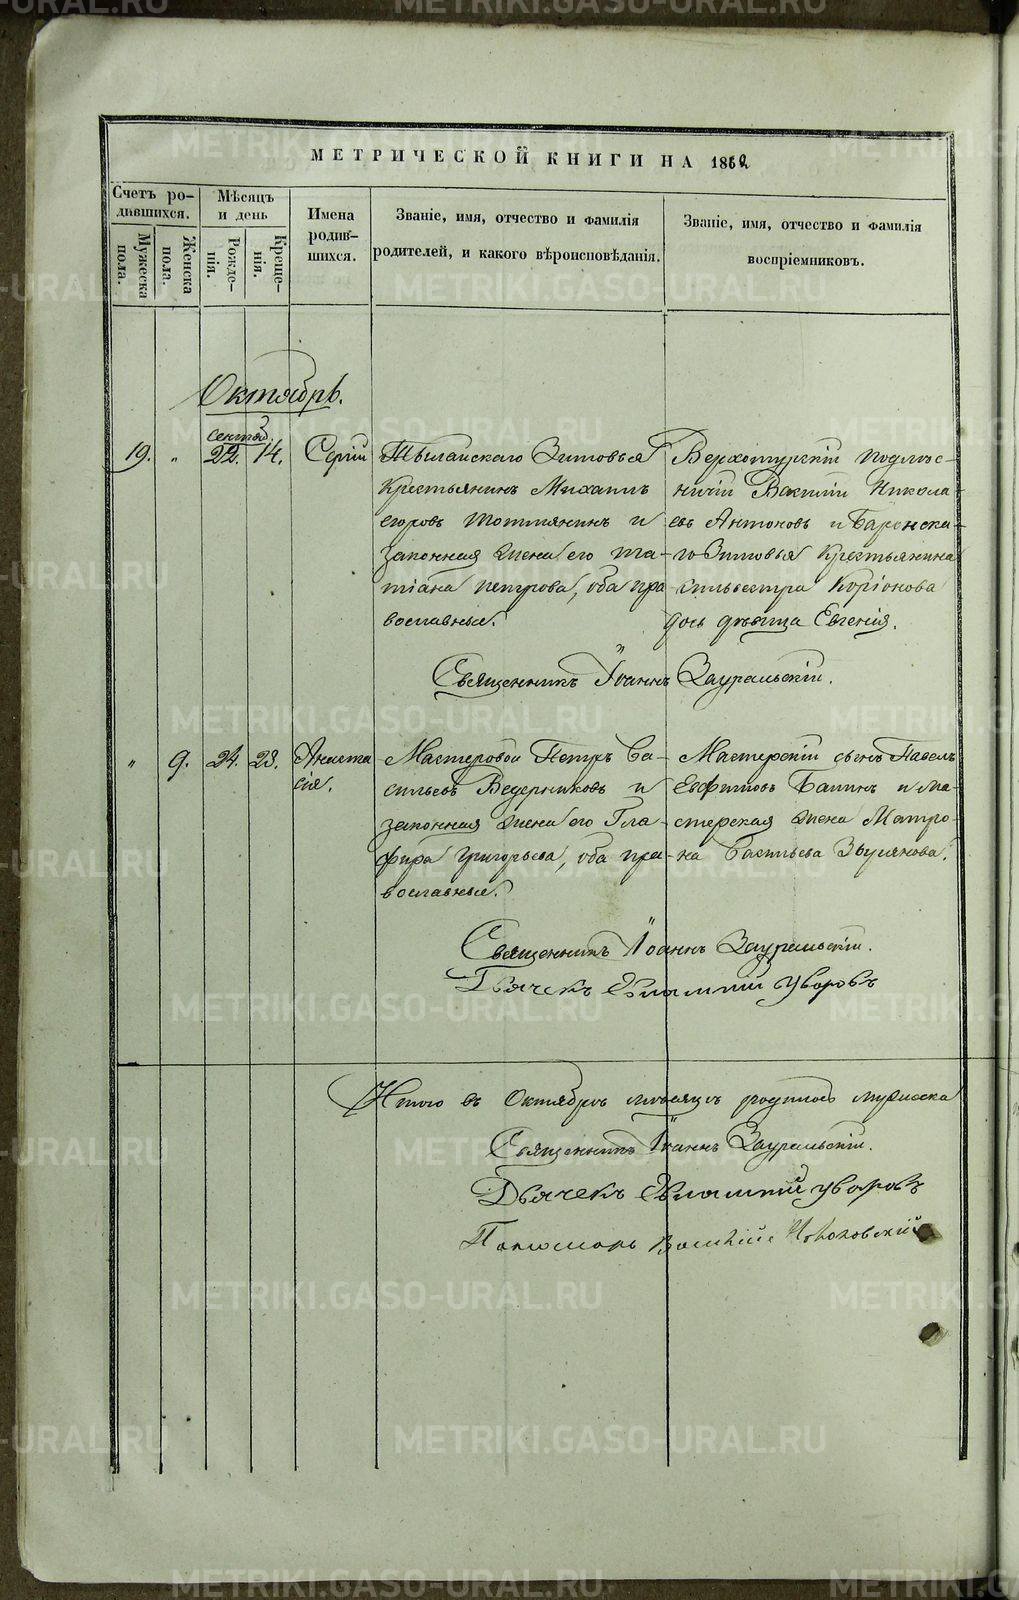 МЕТРИЧЕСКОЙ КНИГИ НА 1862
Счетъ ро-
дившихся.
Мужеска
пола.
Женска
пола.
Мѣсяцъ
и день
Рожде-
нія.
Креще-
нія.
Имена
родив-
шихся.
Званіе, имя, отчество и фамилія
родителей, и какого вѣроисповѣданія.
Званіе, имя, отчество и фамилія
воспріемниковъ.
Октябрь.
19. " сентяб. 22. 14. Сергій
Тылайскаго Зимовья
Крестьянинъ Михаилъ
егоровъ Тотмянинъ и
законная жена его та-
тіана петрова, оба пра
вославные.
Верхотурскій подлѣс-
ничій Василій Никола
евъ Антоновъ и Баронска-
го Зимовья Крестьянина
сильвестра Коріонова
дочь дѣвица Евгенія.
Священникъ Іоаннъ Зауральскій.
" 9. 24. 23. Анаста
сія.
Мастеровой Петръ Ва-
сильевъ Ведерниковъ и
законная жена его Гла-
фира григорьева, оба пра-
вославные.
Мастерскій сынъ Павелъ
Евфимовъ Бапинъ и ма-
стерская жена Матро-
на Васильева
Священникъ Іоаннъ Зауральскій.
Дьячекъ Евлампій Уваровъ
Итого въ Октябрѣ мѣсяцѣ родилось мужеска
Священникъ Іоаннъ Зауральскій.
Дьячекъ Евлампій Уваровъ
Пономарь Василій
METRIKI.GASO-URAL.RU